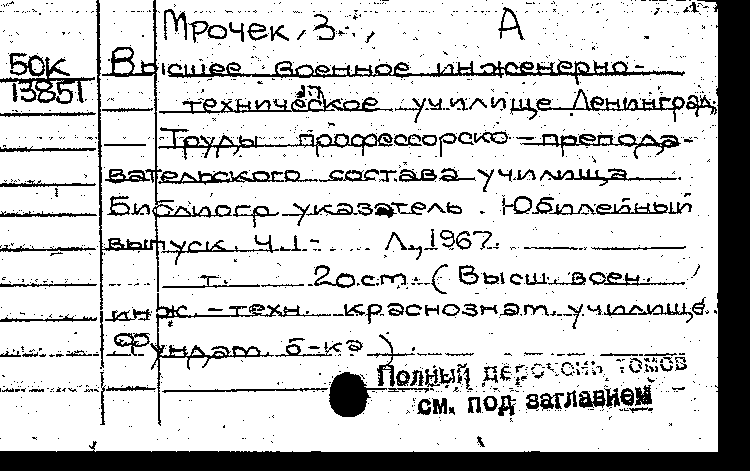 Мрочек, З., А
50К
13851
Высшее военное инженерно-
техническое училище Ленинград.
Труды профессорско-препода-
вательского состава училища
Библиогр указатель. Юбилейный
выпуск. Ч.1- Л., 1967.
т. 20см. (Высш. воен.
инж.-техн. краснознам. училище.
Фундам. б-ка).
Полный перечень томов
см. под заглавием